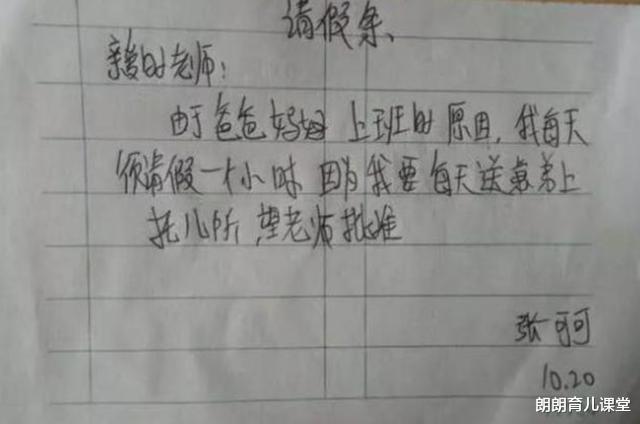 请假条、
亲爱的老师：
由于爸爸妈妈上班的原因，我每天
须请假一个小时因为我要每天送弟弟上
托儿所，望老师批准
张可可
10.20
朗朗育儿课堂